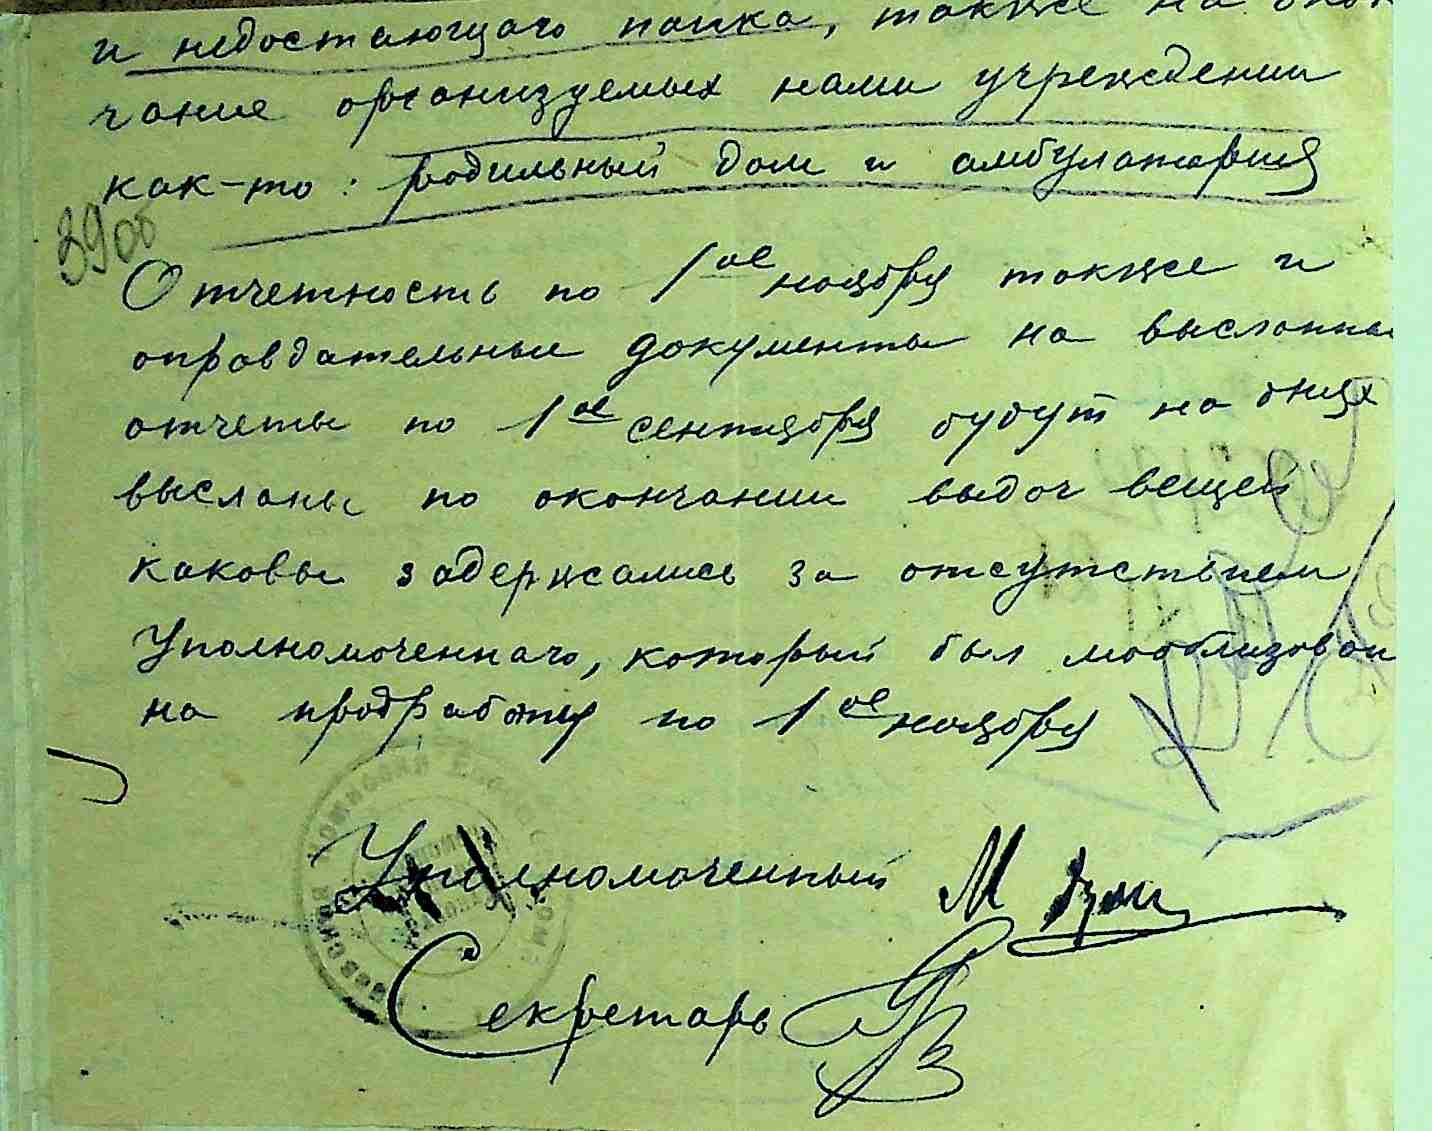 и недостающаго пайка, также на окон
чание организуемых нами учреждении
как-то: родильный дом и амбулатория
39об
Отчетность по 1ое ноября также и
оправдательные документы на высланные
отчеты по 1ое сентября будут на днях
высланы по окончании выдач вещей
каковы задержались за отсутствием
Уполномоченнаго, который был мобилизован
на продработу по 1ое ноября
Уполномоченный М
Секретарь